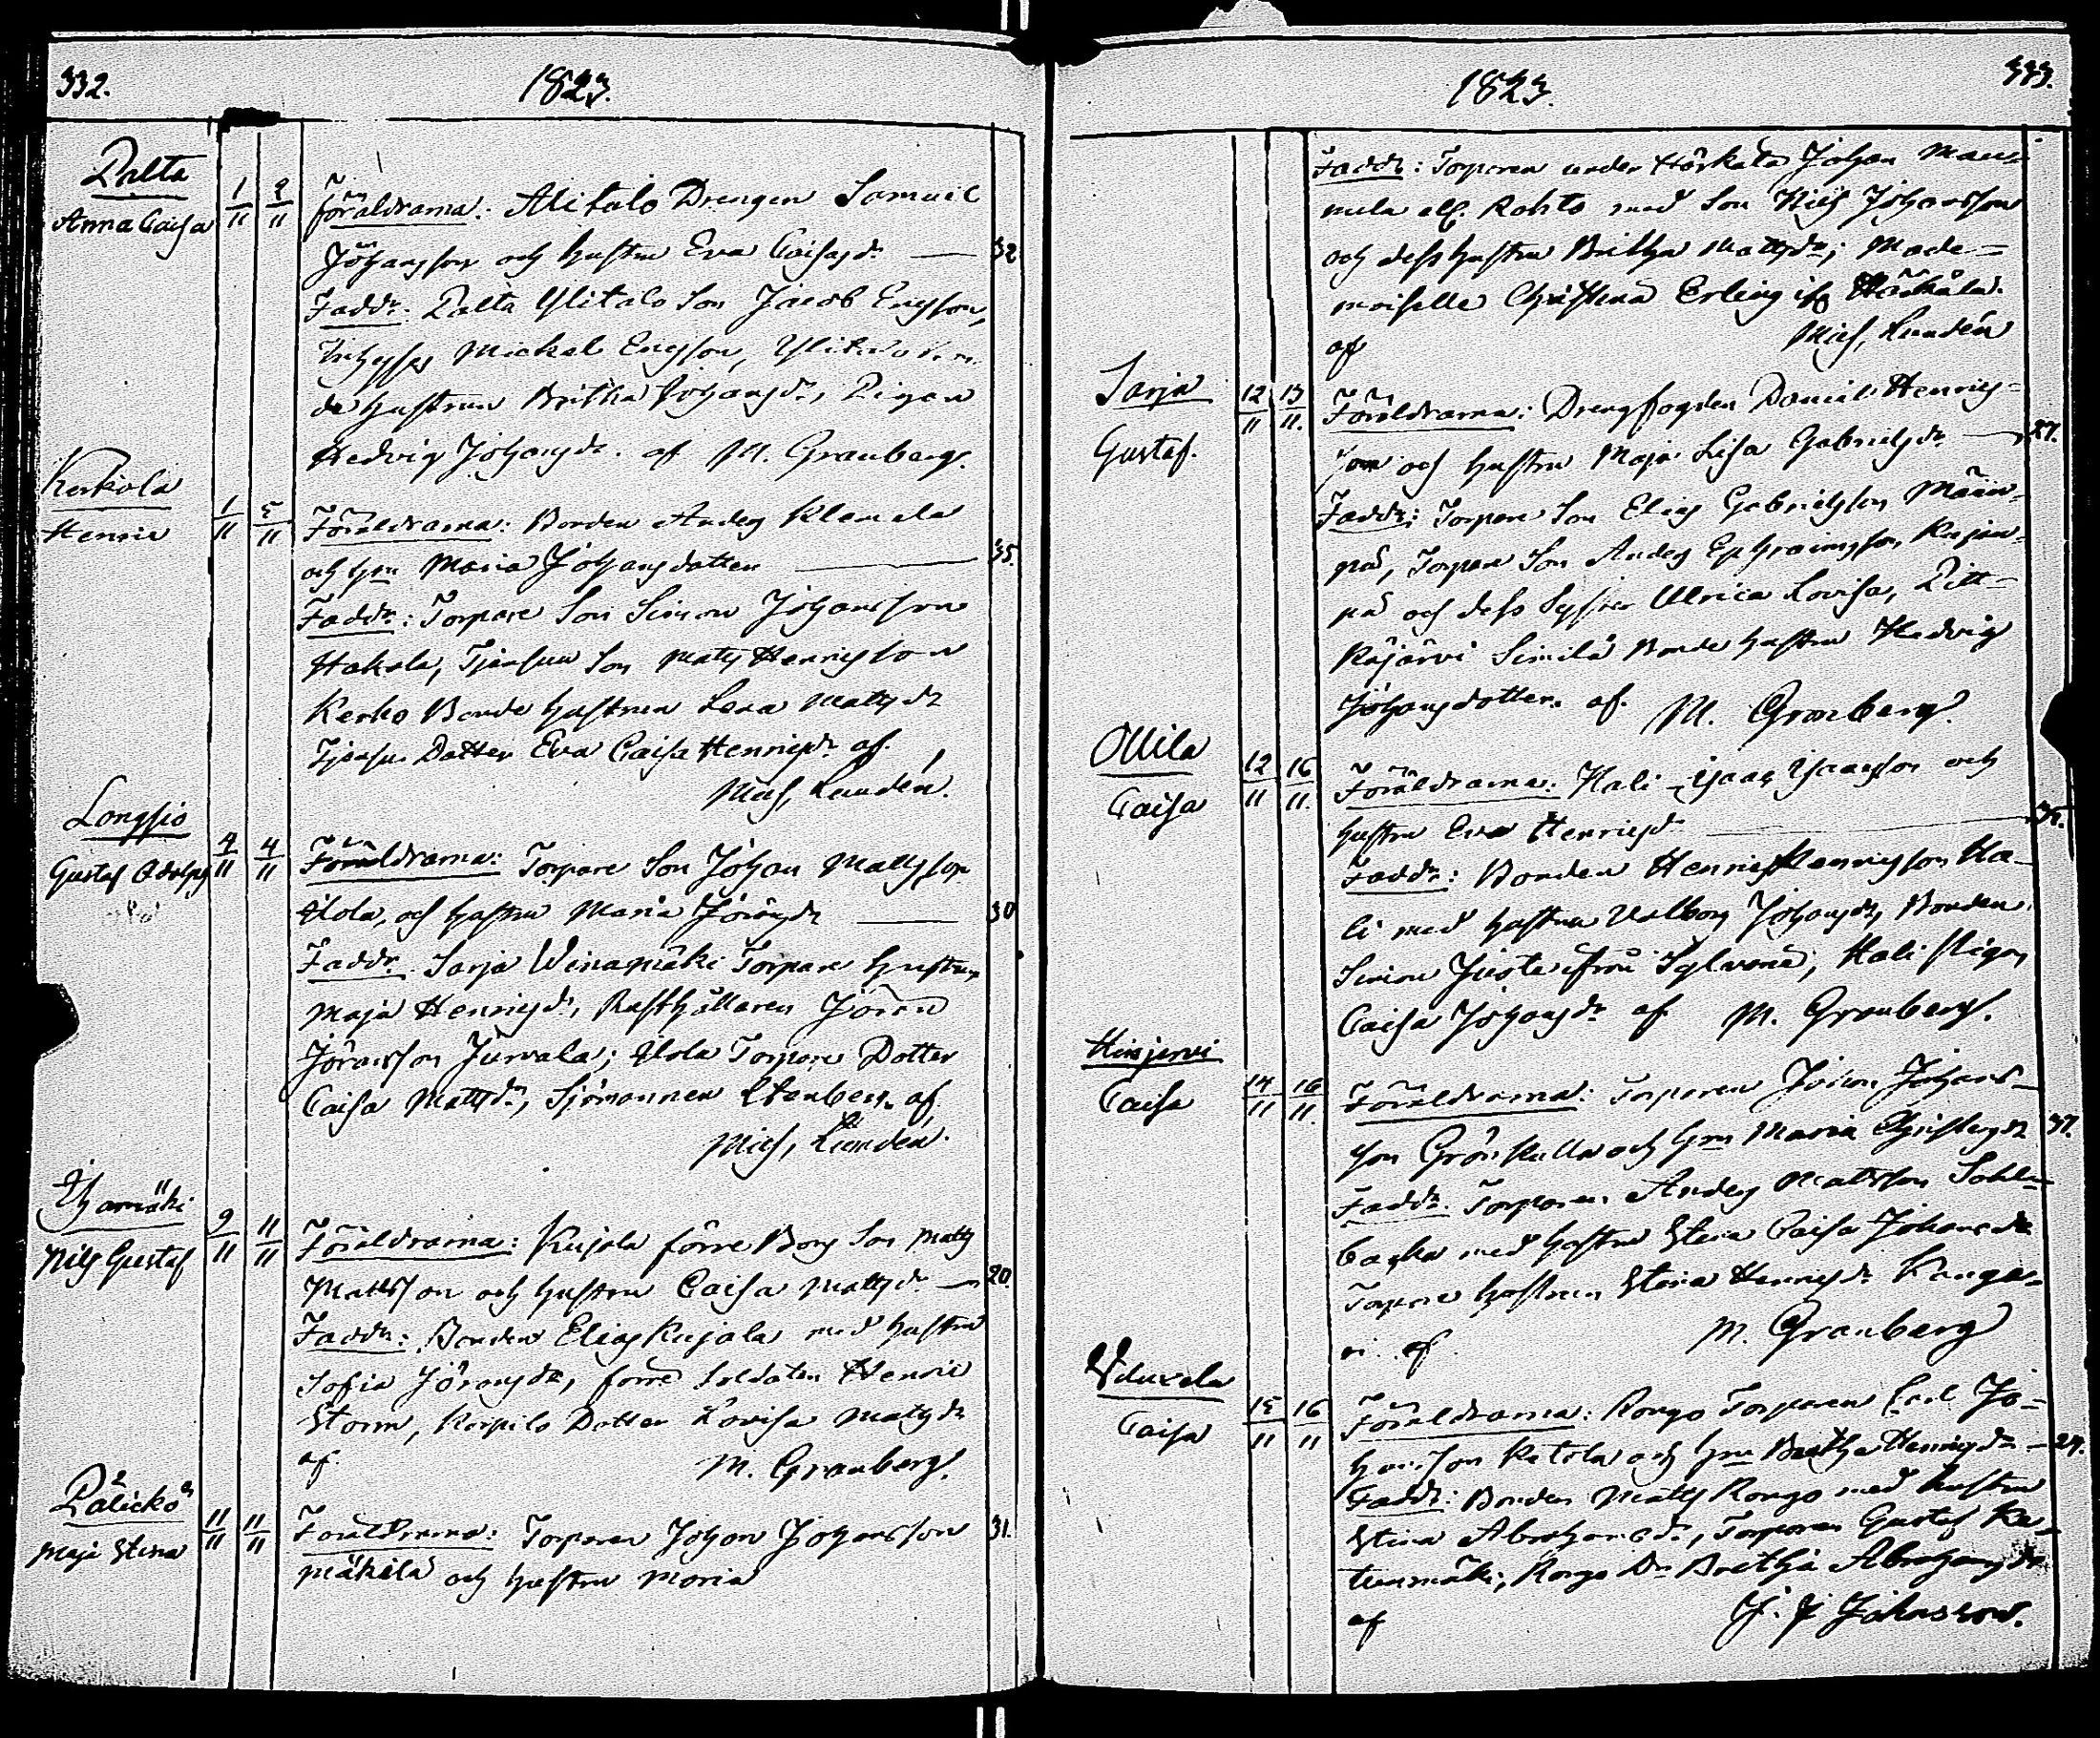 332.
1823.
Palta
Anna Caisa
1/11 2/11
Föräldrarna: Alitalo Drengen Samuel
Johansson och hustru Eva Caisasdr 32
Faddr: Palta Ylitalo Son Jacob Ericsson,
Michel Ericsson,
de hustrun Britha Johansdr, Pigan
Hedvig Johansdr. af M. Granberg.
Kerkola
Henric
1/11 5/11
Föräldrarna: Bonden Anders Klemala
och hru Maria Johansdotter 35.
Faddr: Torpare Son Simon Johansson
Hakola, Son Matts Henricsson
Kerko Bonde hustrun Lena Mattsdr
Dotter Eva Caisa Henricsdr af.
Mich, Lundén.
Longsio
Gustaf Adolph
4/11 4/11
Föräldrarna: Torpare Son Johan Mattsson
Ilola, och hustru Maria Jöransdr 30
Faddr. Sarja Winamäki Torpare hustrun
Maja Henricsdr, Rusthållaren Jöran
Jöransson Jurvala; Ilola Torpare Dotter
Caisa Mattsdr, Sjömannen af
Mich, Lundén.
Nils Gustaf
9/11 11/11
Föräldrarna: Kujala förre Bonde Son Matts
Mattsson och hustru Caisa Mattsdr 20.
Faddr: Bonden Elias Kujala med hustru
Sofia Jöransdr, förre Soldaten Henric
Storm, Korpilo Dotter Lovisa Mattsdr
af M. Granberg.
Pålickö
Maja Stina
11/11 11/11
Föräldrarna: Torparen Johan Johansson 31.
Mäkelä och hustru Maria
333.
1823.
Faddr: Torparen under Hörkälä Johan Man-
nula ell. Rahto med Son Nils Johansson
och dess hustru Britha Mattsdr; Made-
moiselle Christina Erling
af Mich, Lundén
Sarja
Gustaf.
12/11 13/11.
Föräldrarna: Drengfogden Daniel Henrics-
son och hustru Maja Lisa Gabrielsdr 27.
Faddr: Torpare Son Elias Gabrielsson Männ-
pä, Torpare Son Anders Ephraimsson Kujan-
pä och dess Syster Ulrica Lovisa, Pitt-
käjärvi Similä Bonde hustru Hedvig
Johansdotter. af. M. Granberg.
Ollila
Caisa
12/11 16/11.
Föräldrarna: Hali Isaac Isaacsson och
hustru Eva Henricsdr
Faddr: Bonden Henric Henricsson Ha-
li med hustru Valborg Johansdr, Bonden
Simon Juota ifrån Sylvenä, Hali Pigan
Caisa Johansdr af M. Granberg.
Hirsjervi
Caisa
14/11 16/11.
Föräldrarna: Torparen Johan Johans-
son Grönkulla och hru Maria Christersdr 37.
Faddr. Torparen Anders Mattsson Sahlm-
backa med hustru Stina Caisa Johansdr
Torpare hustrun Stina Henricsdr Kanga-
ri. af M. Granberg
Caisa
15/11 16/11
Föräldrarna: Rongo Torparen Carl Jo-
hansson Ketola och hru Britha Henricsdr 24.
Faddr: Bonden Matts Rongo med hustru
Stina Abrahamsdr, Torparen Gustaf Ka-
tinmäki, Rongo Dr Britha Abrahamsdr
af J. J Johnsson.